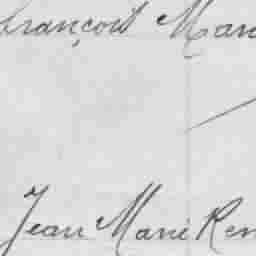 François Mar
Jean Marie Ren